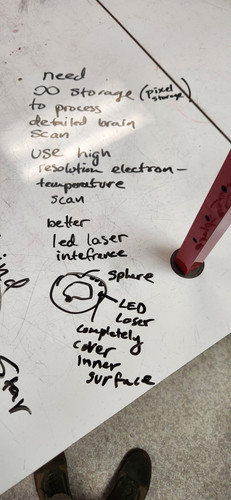 . need
∞ storage (pixel storage)
to process
detailed brain
scan
use high
resolution electron -
temperature
scan
better
led laser
intefrance
sphere
LED
Laser
completely
cover
inner
surface